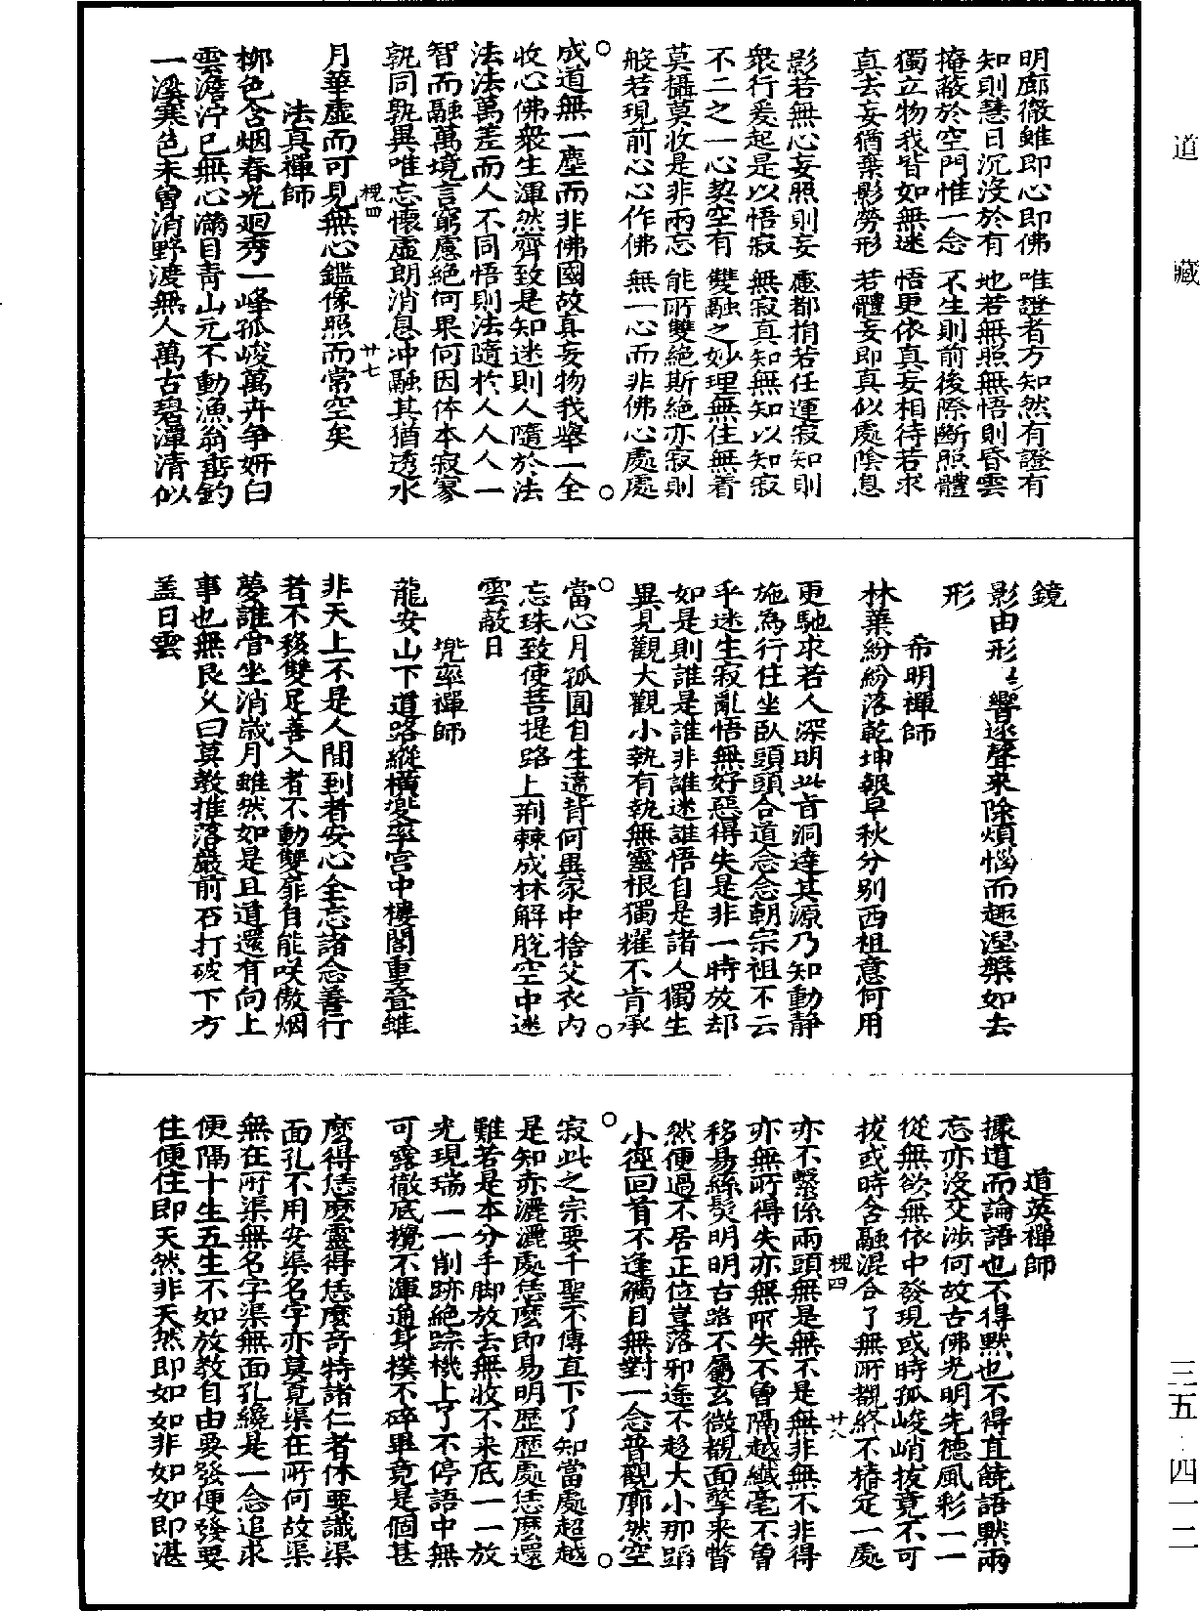 道藏
明廊徹雖即心即佛唯證者方知然有證有
知則慧日沉沒於有地若無照無悟則昏雲
掩蔽於空門惟一念不生則前後際斷照體
獨立物我皆如無迷悟更依真妄相待若求
真去妄猶棄影勞形若體妄即真似處陰息
影若無心妄照則妄慮都捐若任運寂知則
衆行爰起是以悟寂無寂真知無知以知寂
不二之一心契空有雙融之妙理無住無着
莫攝莫收是非兩忘能所雙絕斯絕亦寂則
般若現前心心作佛無一心而非佛心處處
成道無一塵而非佛國故真妄物我舉一全
收心佛衆生渾然齊致是知迷則人隨於法
法法萬差而人不同悟則法隨於人人人一
智而融萬境言窮慮絕何果何因体本寂寥
孰同孰異唯忘懷虛朗消息冲融其猶透水
槐四 廿七
月華虛而可見無心鑑像照而常空矣
法真禪師
柳色含烟春光迴秀一峰孤峻萬卉争妍白
雲澹泞已無心滿目青山元不動漁翁垂釣
一溪寒色未曽消野渡無人萬古碧潭清似
鏡
影由形〻響逐聲来除煩惱而趣涅槃如去
形
希明禪師
林葉紛紛落乾坤報早秋分别西祖意何用
更馳求若人深明此旨洞達其源乃知動静
施為行住坐臥頭頭合道念念朝宗祖不云
乎迷生寂亂悟無好惡得失是非一時放却
如是則誰是誰非誰迷誰悟自是諸人獨生
異見觀大觀小執有執無靈根獨耀不肯承
當心月孤圓自生違背何異家中捨父衣内
忘珠致使菩提路上荊棘成林解脫空中迷
雲蔽日
兜率禪師
龍安山下道路縱横兠率宮中樓閣重叠雖
非天上不是人間到者安心全忘諸念善行
者不移雙足善入者不動雙扉自能咲傲烟
夢誰管坐消歲月雖然如是且道還有向上
事也無良乆曰莫教推落巖前石打破下方
盖日雲
道英禪師
據道而論語也不得黙也不得直饒語黙兩
忘亦没交涉何故古佛光明先德風彩一一
從無欲無依中發現或時孤峻峭拔竟不可
拔或時含融混合了無所覩終不樁定一處
槐四 廿八
亦不繫係兩頭無是無不是無非無不非得
亦無所得失亦無所失不曽隔越纖毫不曽
移易絲髮明明古路不屬玄微覿面擎来瞥
然便過不居正位豈落邪途不趍大小那蹈
小徑回首不逢觸目無對一念普觀廓然空
寂此之宗要千聖不傳直下了知當處超越
是知亦灑灑處恁麽即易明歴歴處恁麽還
難若是本分手脚放去無收不来底一一放
光現瑞一一削跡絶踪機上了不停語中無
可露徹底攪不渾通身撲不碎畢竟是個甚
麽得恁麽靈得恁麽奇特諸仁者休要識渠
面孔不用安渠名字亦莫覓渠在所何故渠
無在所渠無名字渠無面孔纔是一念追求
便隔十生五生不如放教自由要發便發要
住便住即天然非天然即如如非如如即湛
三五·四一二